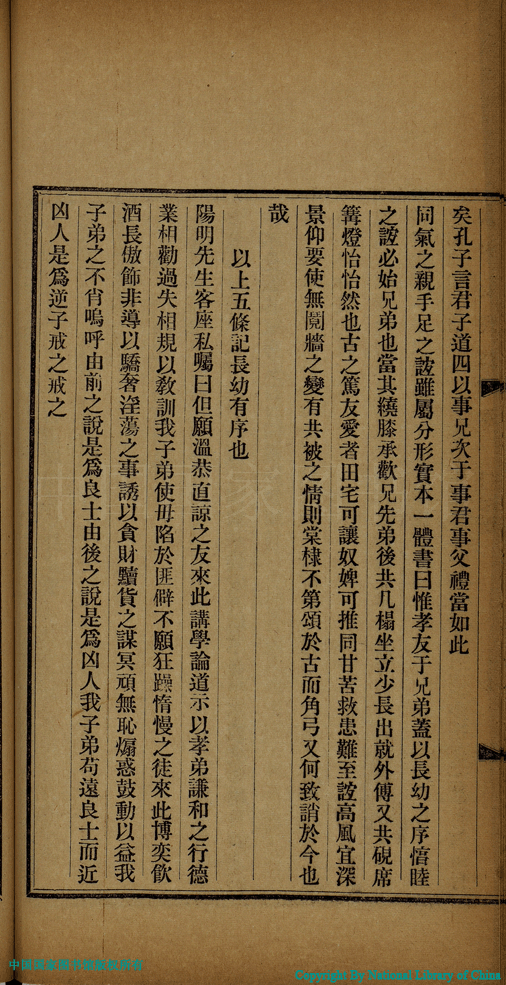 矣孔子言君子道四以事兄次于事君事父禮當如此
同氣之親手足之誼雖屬分形實本一體書曰惟孝友于兄弟蓋以長幼之序惇睦
之誼必始兄弟也當其繞膝承歡兄先弟後共几榻坐立少長出就外傅又共硯席
篝燈怡怡然也古之篤友愛者田宅可讓奴婢可推同甘苦救患難至誼高風宜深
景仰要使無鬩牆之變有共被之情則棠棣不第頌於古而角弓又何致誚於今也
哉
以上五條記長幼有序也
陽明先生客座私囑曰但願溫恭直諒之友來此講學論道示以孝弟謙和之行德
業相勸過失相規以教訓我子弟使毋陷於匪僻不願狂躁惰慢之徒來此博奕飲
酒長傲飾非導以驕奢淫蕩之事誘以貪財黷貨之謀冥頑無恥煽惑鼓動以益我
子弟之不肖嗚呼由前之說是爲良士由後之說是爲凶人我子弟苟遠良士而近
凶人是爲逆子戒之戒之
Copyright By National Library of China